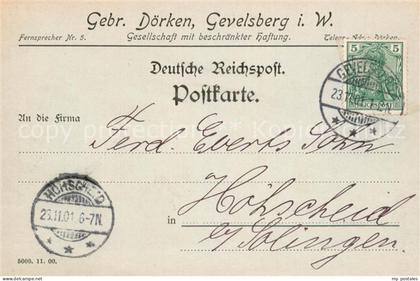 Gebr. Dörken, Gevelsberg i. W.
Fernsprecher Nr. 5. Gesellschaft mit beschränkter Haftung. Telegr.-Adr.: Dörken.
5 5
GEVELSBERG
23.11.01
Deutsche Reichspost.
Postkarte.
An die Firma
Ferd. Everts Sohn
HÖHSCHEID
23.11.01 6-7N.
in Höhscheid
b/Solingen.
5000. 11. 00.